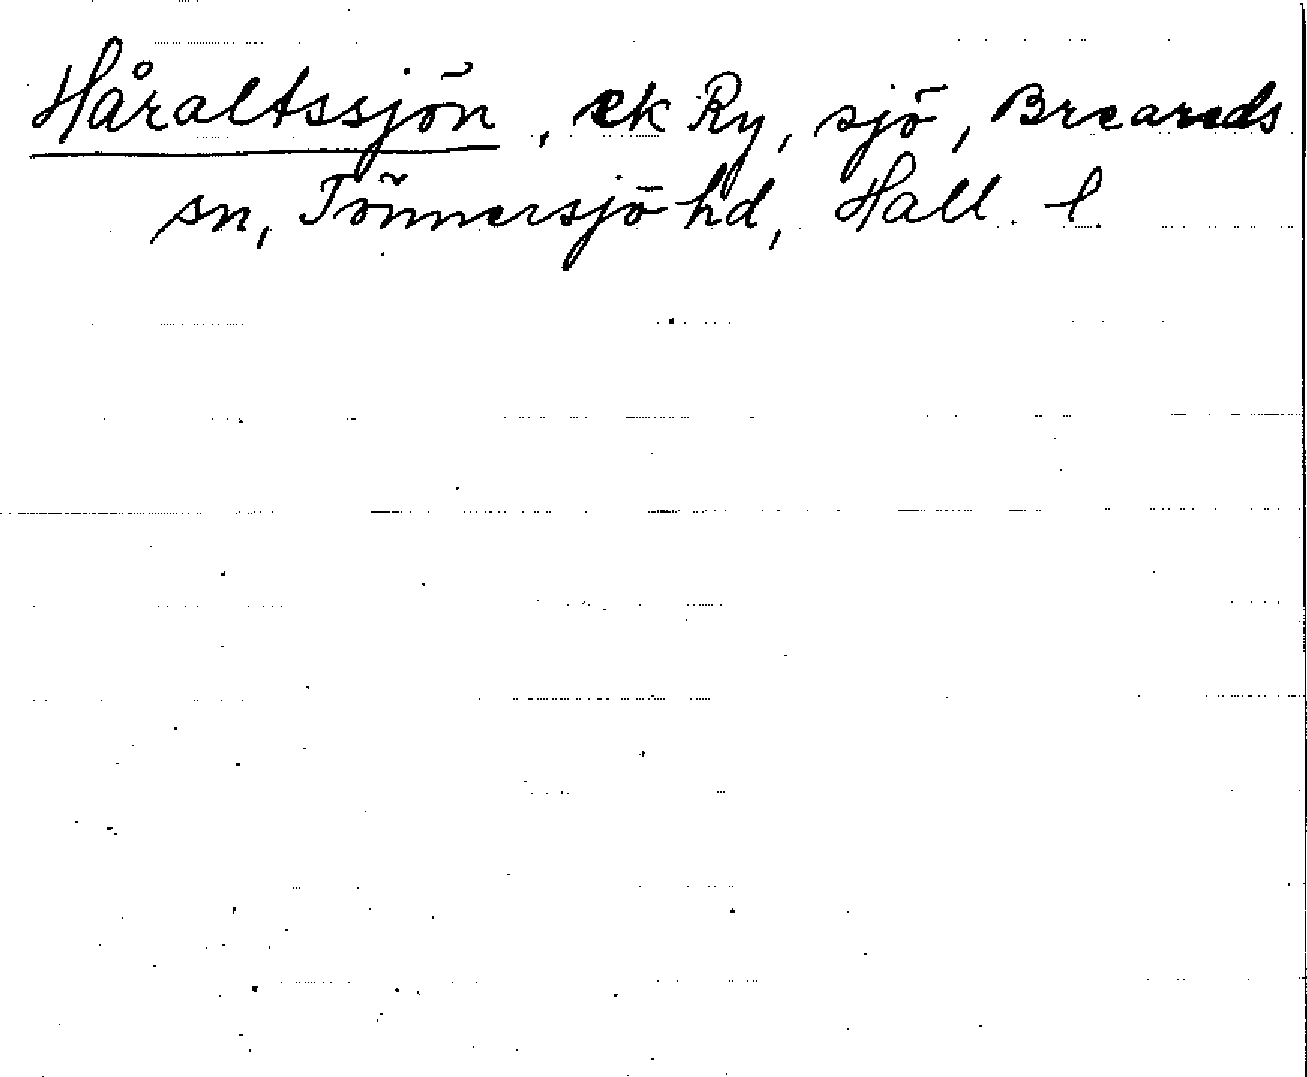 Håraltssjön, ek Ry, sjö, Breareds
sn, Tönnersjö hd, Hall. l